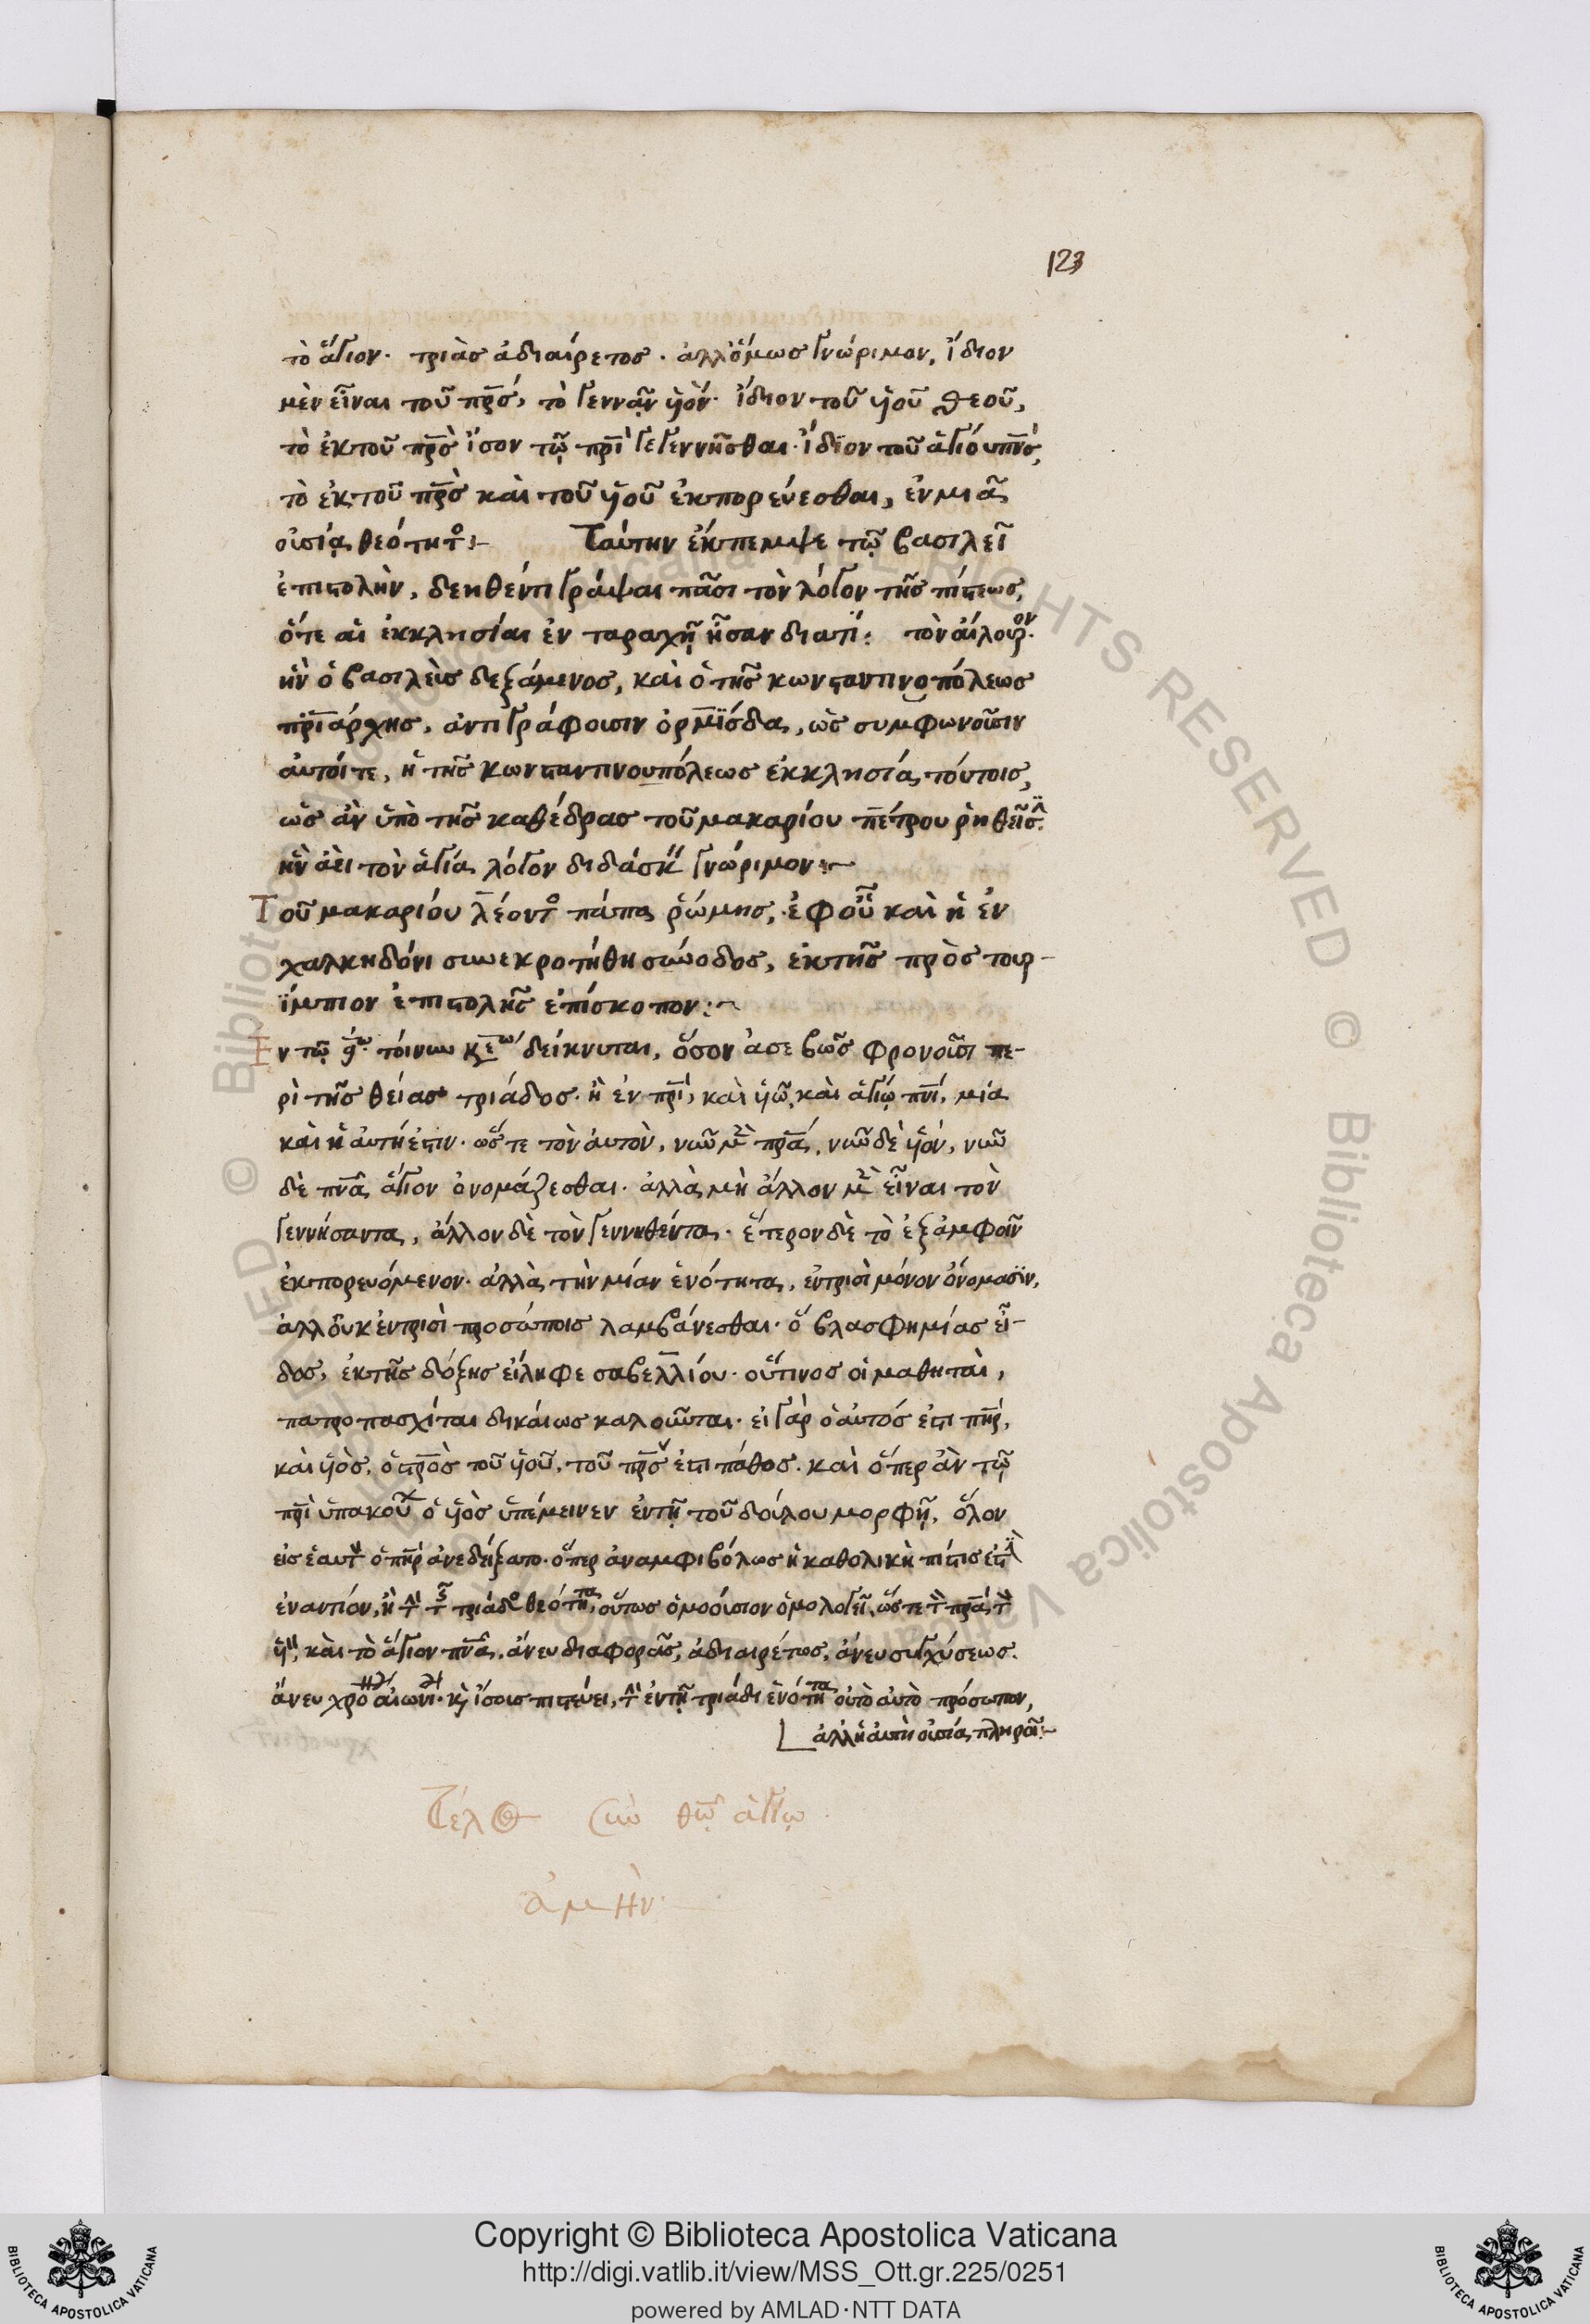 123
τὸ ἅγιον· τριὰς ἀδιαίρετος· ἀλλ' ὅμως γνώριμον, ἴδιον
μὲν εἶναι τοῦ πρ̅ς, τὸ γεννᾶν υἱόν· ἴδιον τοῦ υἱοῦ θεοῦ,
τὸ ἐκ τοῦ πρ̅ς ἴσον τῷ πρ̅ι γεγεννῆσθαι· ἴδιον τοῦ ἁγίου πν̅ς,
τὸ ἐκ τοῦ πρ̅ς καὶ τοῦ υἱοῦ ἐκπορεύεσθαι, ἐν μιᾷ
οὐσίᾳ θεότητο:— Ταύτην ἔκπεμψε τῷ βασιλεῖ
ἐπιστολὴν, δεηθέντι γράψαι πᾶσι τὸν λόγον τῆς πίστεως,
ὅτε αἱ ἐκκλησίαι ἐν ταραχῇ ἦσαν διατί: τὸν αἴλουρον·
ἣν ὁ βασιλεὺς δεξάμενος, καὶ ὁ τῆς κωνσταντινοπόλεως
πρ̅ιάρχης, ἀντιγράφουσιν ὁρμίσδα, ὡς συμφωνοῦσιν
αὐτοί τε, ἡ τῆς κωνσταντινουπόλεως ἐκκλησία τούτοις,
ὡς ἂν ὑπὸ τῆς καθέδρας τοῦ μακαρίου πέτρου ῥηθεῖσ
ἣν ἀεὶ τὸν ἁγία λόγον διδάσκ γνώριμον:~
Τοῦ μακαρίου λέοντο πάπα ῥώμης, ἐφ οὗ καὶ ἡ ἐν
χαλκηδόνι συνεκροτήθη σύνοδος, ἐκ τῆς πρὸς τουρ-
ίμπιον ἐπιστολῆς ἐπίσκοπον:~
Ἐν τῷ τοίνυν δείκνυται, ὅσον ἀσεβῶς φρονοῦσι πε-
ρὶ τῆς θείας τριάδος· ἣ ἐν πρ̅ι, καὶ υἱῷ, καὶ ἁγίῳ πν̅ι, μία
καὶ ἡ αὐτή ἐστιν· ὥστε τὸν αὐτὸν, νῦν μὲν πρ̅α, νῦν δὲ υἱόν, νῦν
δὲ πν̅α ἅγιον ὀνομάζεσθαι· ἀλλὰ μὴ ἄλλον μὲν εἶναι τὸν
γεννήσαντα, ἄλλον δὲ τὸν γεννηθέντα· ἕτερον δὲ τὸ ἐξ ἀμφοῖν
ἐκπορευόμενον· ἀλλὰ τὴν μίαν ἑνότητα, ἐν τρισὶ μόνον ὀνόμασιν,
ἀλλ οὐκ ἐν τρισὶ προσώποις λαμβάνεσθαι· ὃ βλασφημίας εἶ-
δος, ἐκ τῆς δόξης εἴληφε σαβελλίου· οὗτινος οἱ μαθηταὶ,
πατροπασχῖται δικαίως καλοῦνται· εἰ γὰρ ὁ αὐτός ἐστι πη̅ρ,
καὶ υἱὸς, ὁ σρ̅ος τοῦ υἱοῦ, τοῦ πρ̅ς ἐστι πάθος· καὶ ὅπερ ἂν τῷ
πρ̅ι ὑπακού ὁ υἱὸς ὑπέμεινεν ἐν τῇ τοῦ δούλου μορφῇ, ὅλον
εἰς ἑαυτ ὁ πη̅ρ ἀνεδείξατο· ὅπερ ἀναμφιβόλως ἡ καθολικὴ πίστις ἐστ
ἐναντίον, ἣ τριάδο θεότητα, οὕτως ὁμοούσιον ὁμολογεῖ, ὥστε τ πρ̅α, τ
υἱ, καὶ τὸ ἅγιον πν̅α, ἄνευ διαφορᾶς, ἀδιαιρέτως, ἄνευ συγχύσεως.
ἄνευ χρό αἰωνι· κ ἴσοις πιστεύει, τ ἐν τῇ τριάδι ἑνότητα οὐ τὸ αὐτὸ πρόσωπον,
ἀλλ ἡ αὐτὴ οὐσία πληροῖ:~
Τέλος σὺν θῷ ἁγίῳ.
ἀμήν.
Copyright © Biblioteca Apostolica Vaticana
http://digi.vatlib.it/view/MSS_Ott.gr.225/0251
powered by AMLAD·NTT DATA
BIBLIOTECA APOSTOLICA VATICANA
BIBLIOTECA APOSTOLICA VATICANA